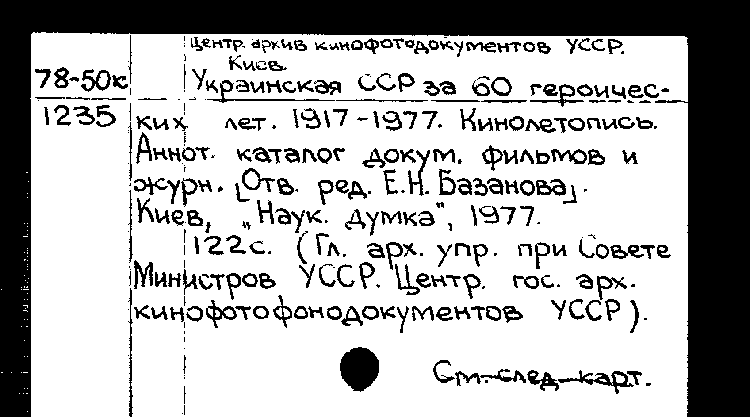 Центр. архив кинофотодокументов УССР.
Киев.
78-50к Украинская ССР за 60 героичес-
1235 ких лет. 1917-1977. Кинолетопись.
Аннот. каталог докум. фильмов и
журн. [Отв. ред. Е.Н. Базанова].
Киев, „Наук. думка", 1977.
122с. (Гл. арх. упр. при Совете
Министров УССР. Центр. гос. арх.
кинофотофонодокументов УССР).
См. след. карт.